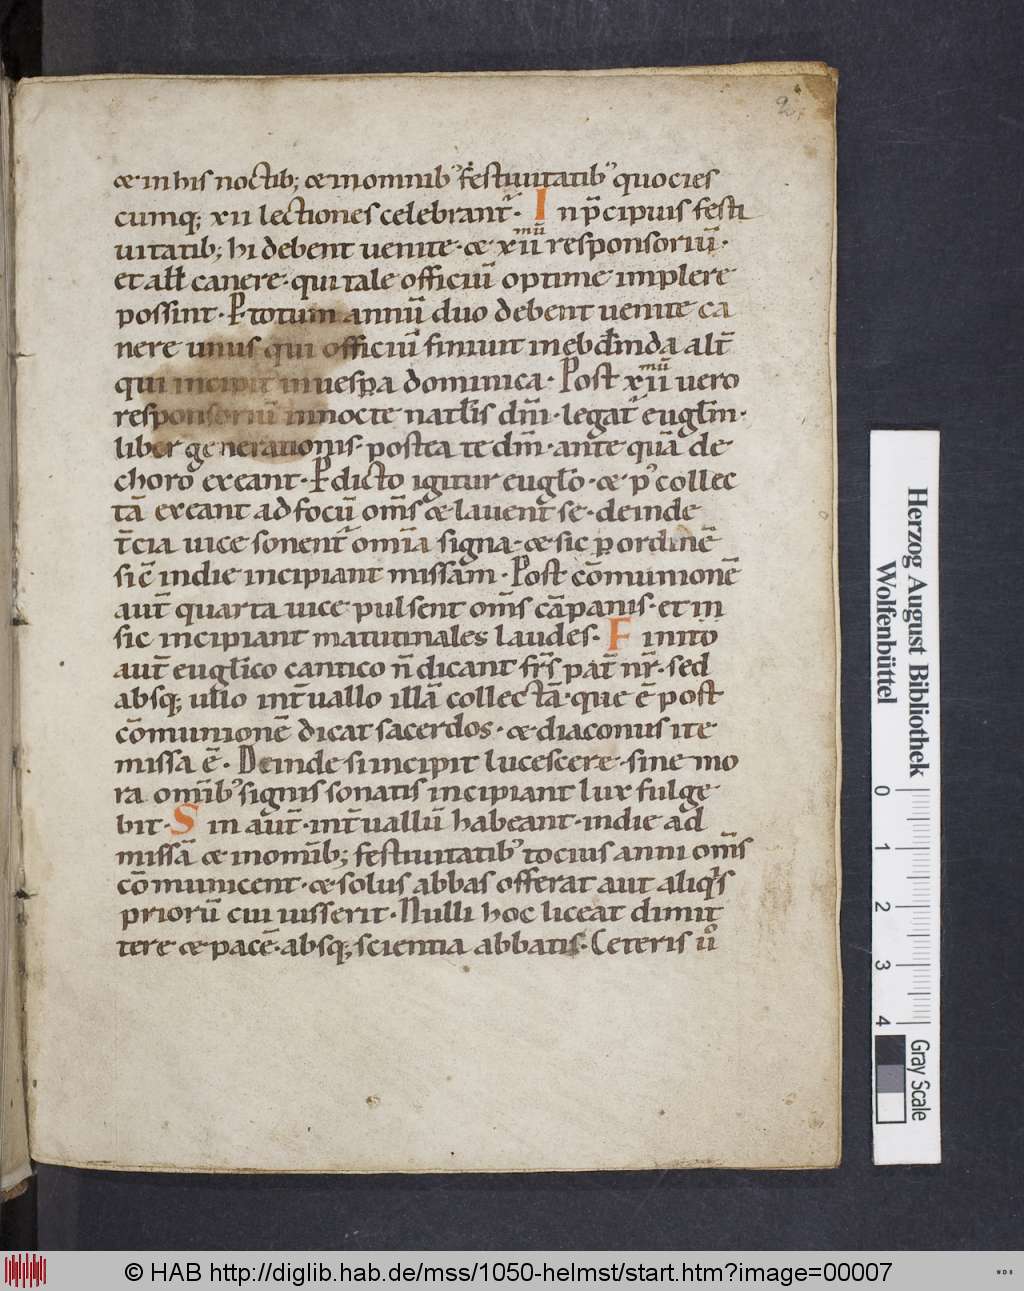 2.
& in his noctib; & in omnibꝰ festiuitatibꝰ quocies
cumq; xii lectiones celebrant᷑. In p̄cipuis festi
uitatib; hi debent uenite. & xii mū responsoriū.
et all̄ canere. qui tale officiū optime implere
possint. P totum annū duo debent uenite ca
nere unus qui officiū finiuit in ebdm̄da alt̄
qui incipit in uesꝑa dominica. Post xii mū uero
responsoriū in nocte natl̄is dn̄i. legat᷑ euglm̄.
liber generationis. postea te dm̄. ante quā de
choro exeant. P̄dicto igitur euglo. & pꝰ collec
tā exeant ad focū om̄s & lauent se. deinde
t̄cia uice sonent᷑ omīa signa. & sic ꝑ ordinē
sic̄ in die incipiant missam. Post cōmunionē
aut̄ quarta uice pulsent om̄s cāpanis. et in
sic incipiant matutinales laudes. Finito
aut̄ euglico cantico n̄ dicant fr̄s pat̄ nr̄. sed
absq; ullo int̄uallo illā collectā. que ē post
cōmunionē dicat sacerdos. & diaconus ite
missa ē. Deinde si incipit lucescere. sine mo
ra omībꝰ signis sonatis incipiant lux fulge
bit. Sin aut̄. int̄uallū habeant. in die ad
missā & in omīb; festiuitatibꝰ tocius anni om̄s
cōmunicent. & solus abbas offerat aut aliqs
priorū cui iusserit. Nulli hoc liceat dimit
tere & pacē. absq; scientia abbatis. Ceteris ūo
Herzog August Bibliothek
Wolfenbüttel
0 1 2 3 4
Gray Scale
© HAB http://diglib.hab.de/mss/1050-helmst/start.htm?image=00007